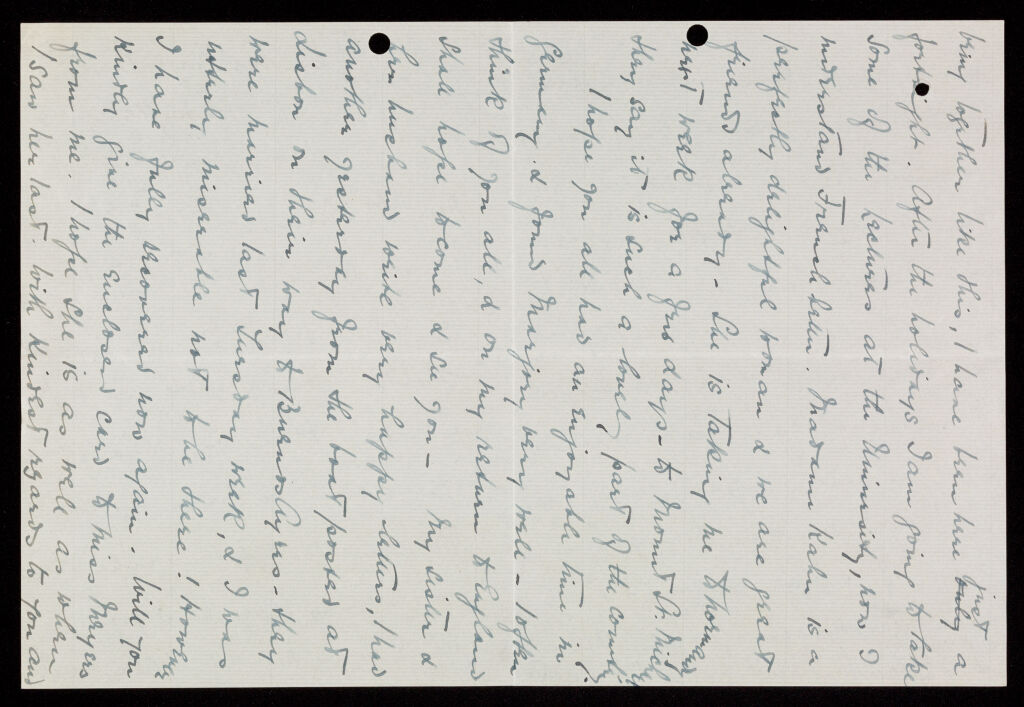 being together like this, I have been here just only a
fortnight. After the holidays I am going to take
some of the lectures at the University, now I
understand French better. Madame Kahn is a
perfectly delightful woman & we are great
friends already - She is taking me to Normandy
next week for a few days - to Mount St. Mich
they say it is such a lovely part of the country.
I hope you all had an enjoyable time in
Germany & found Marjory very well - I often
think of you all, & on my return to England
shall hope to come & see you - My sister &
her husband write very happy letters, I had
another yesterday from the boat posted at
Lisbon on their way to Buenos Ayres - they
were married last Tuesday week, & I was
utterly miserable not to be there! However
I have fully recovered now again. Will you
kindly give the enclosed card to Miss Meyers
from me. I hope she is as well as when
I saw her last. With kindest regards to you and